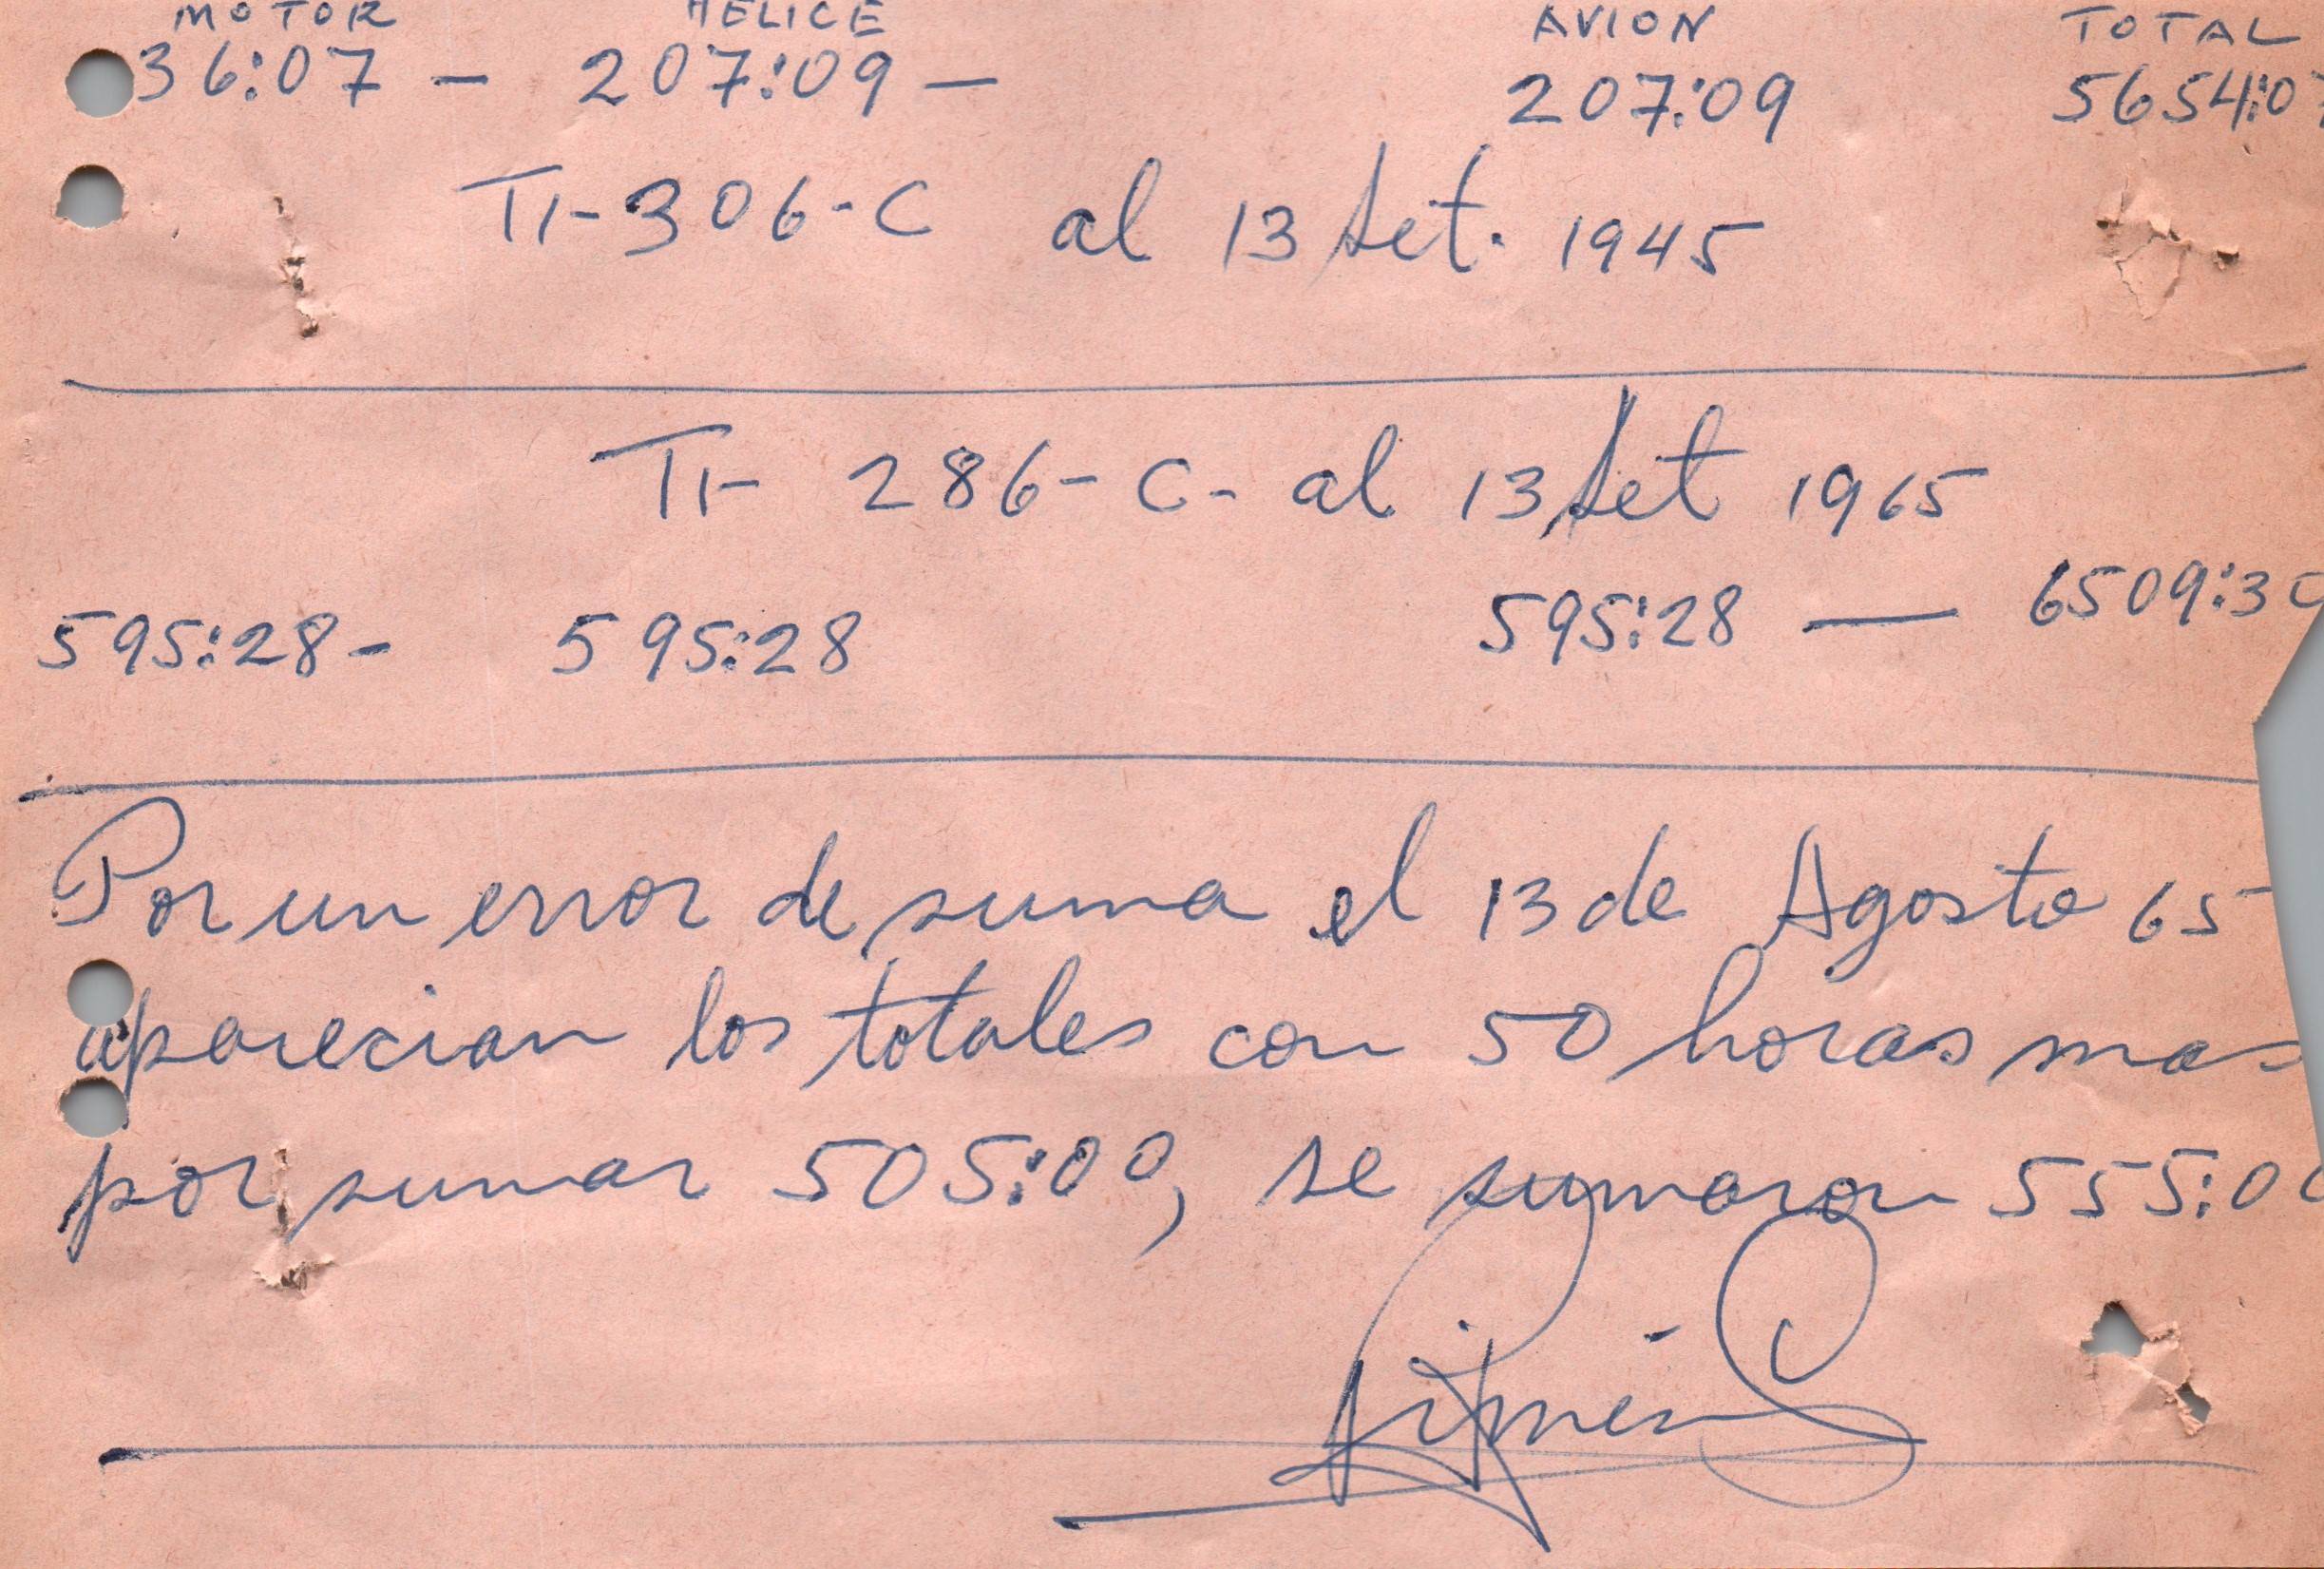 MOTOR HELICE AVION TOTAL
36:07 - 207:09 - 207:09 5654:07
TI-306-C al 13 Set. 1945
TI- 286-C- al 13 Set 1965
595:28- 595:28 595:28 — 6509:30
Por un error de suma el 13 de Agosto 65
aparecian los totales con 50 horas mas
por sumar 505:00, se sumaron 555:00